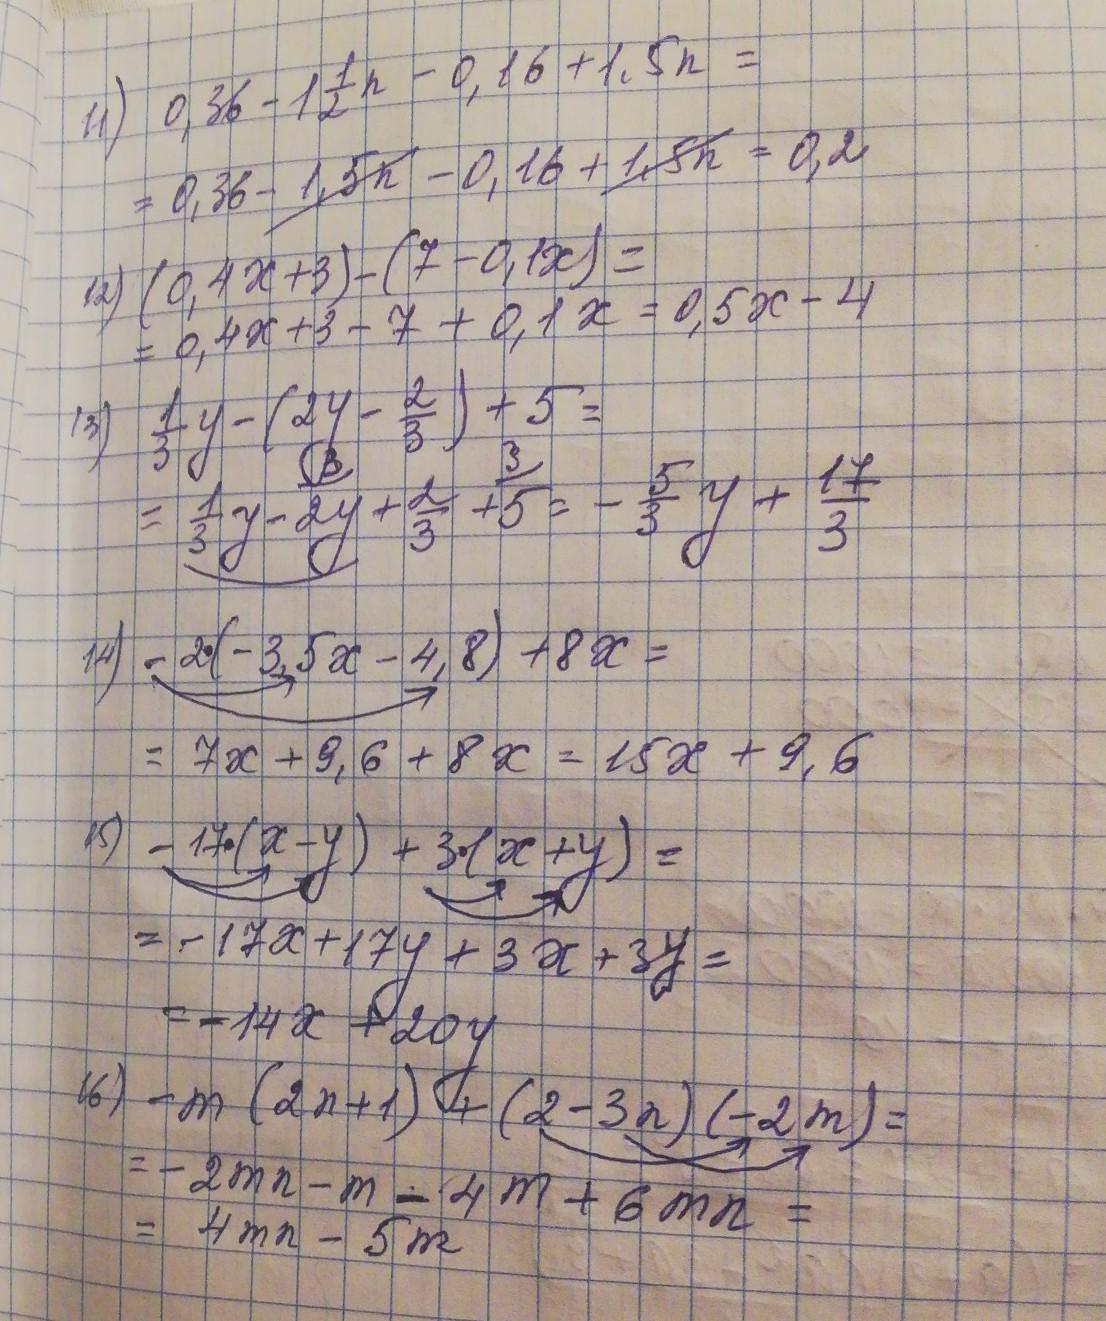 11) 0,36 - 1 1/2 n - 0,16 + 1,5n =
= 0,36 - 1,5n - 0,16 + 1,5n = 0,2
12) (0,4x+3) - (7 - 0,1x) =
= 0,4x + 3 - 7 + 0,1x = 0,5x - 4
13) 1/3 y - (2y - 2/3) + 5 =
3 3
= 1/3 y - 2y + 2/3 + 5 = - 5/3 y + 17/3
14) - 2·(-3,5x - 4,8) + 8x =
= 7x + 9,6 + 8x = 15x + 9,6
15) - 17·(x - y) + 3·(x + y) =
= - 17x + 17y + 3x + 3y =
= - 14x + 20y
16) - m (2n+1) + (2 - 3n) (-2m) =
= - 2mn - m - 4m + 6mn =
= 4mn - 5m